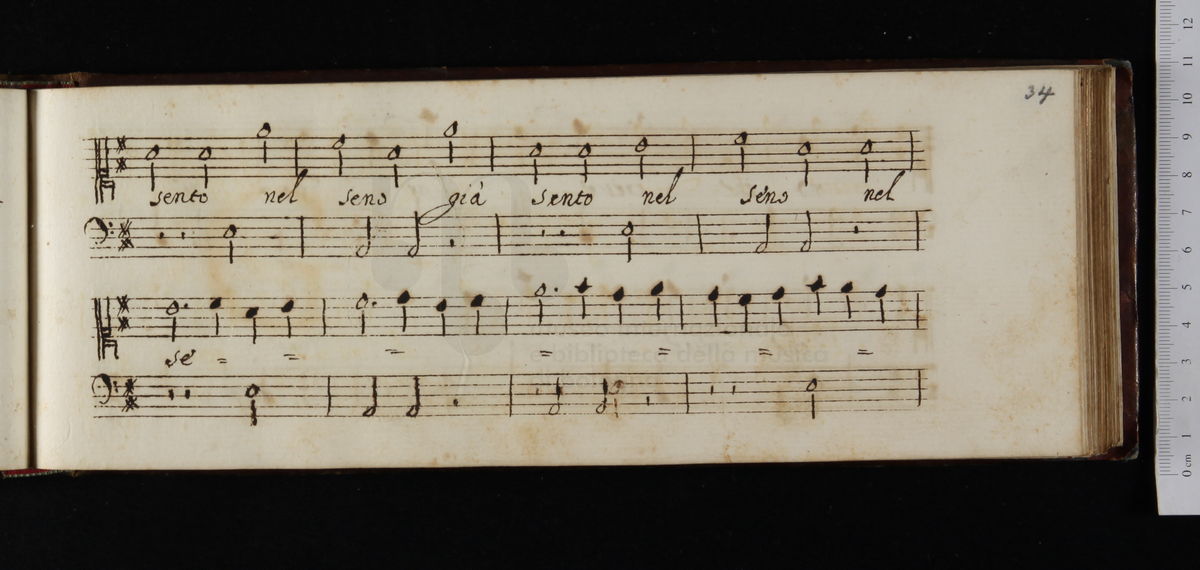 34
sento nel seno già sento nel seno nel
se = = = = = = =
e biblioteca della musica
12
11
10
9
8
7
6
5
4
3
2
1
0 cm